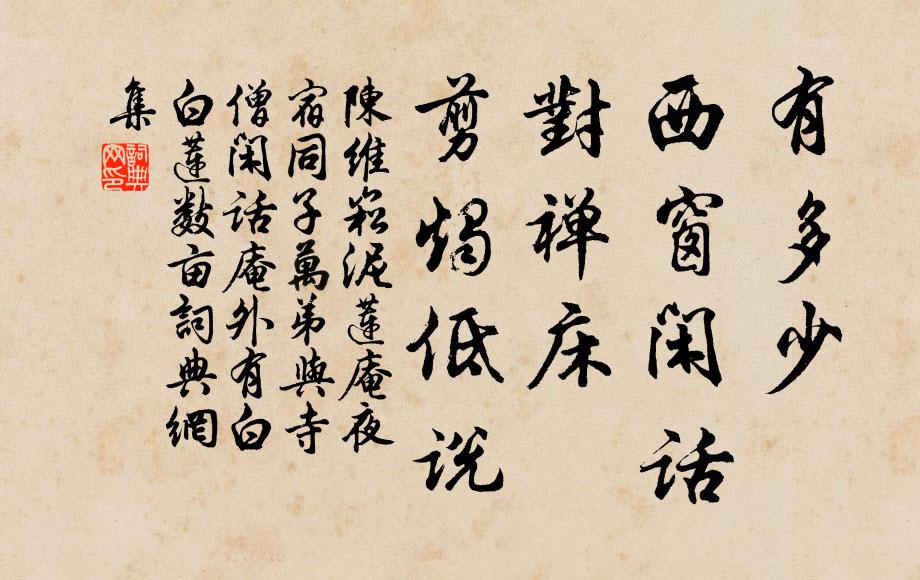 有多少
西窗闲話
對禅床
剪燭低説
陳維崧泥蓮庵夜
宿同子萬弟與寺
僧闲話庵外有白
白蓮數亩詞典網
集
詞典
网印